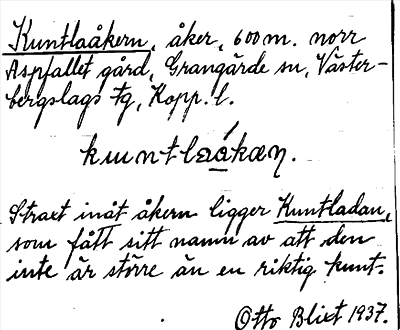 Kuntlaåkern, åker, 600 m. norr
Aspfallet gård, Grangärde sn, Väster-
bergslags tg, Kopp. l.
kuntlaákæn.
Straxt inåt åkern ligger Kuntladan,
som fått sitt namn av att den
inte är större än en riktig kunt.
Otto Blixt 1937.